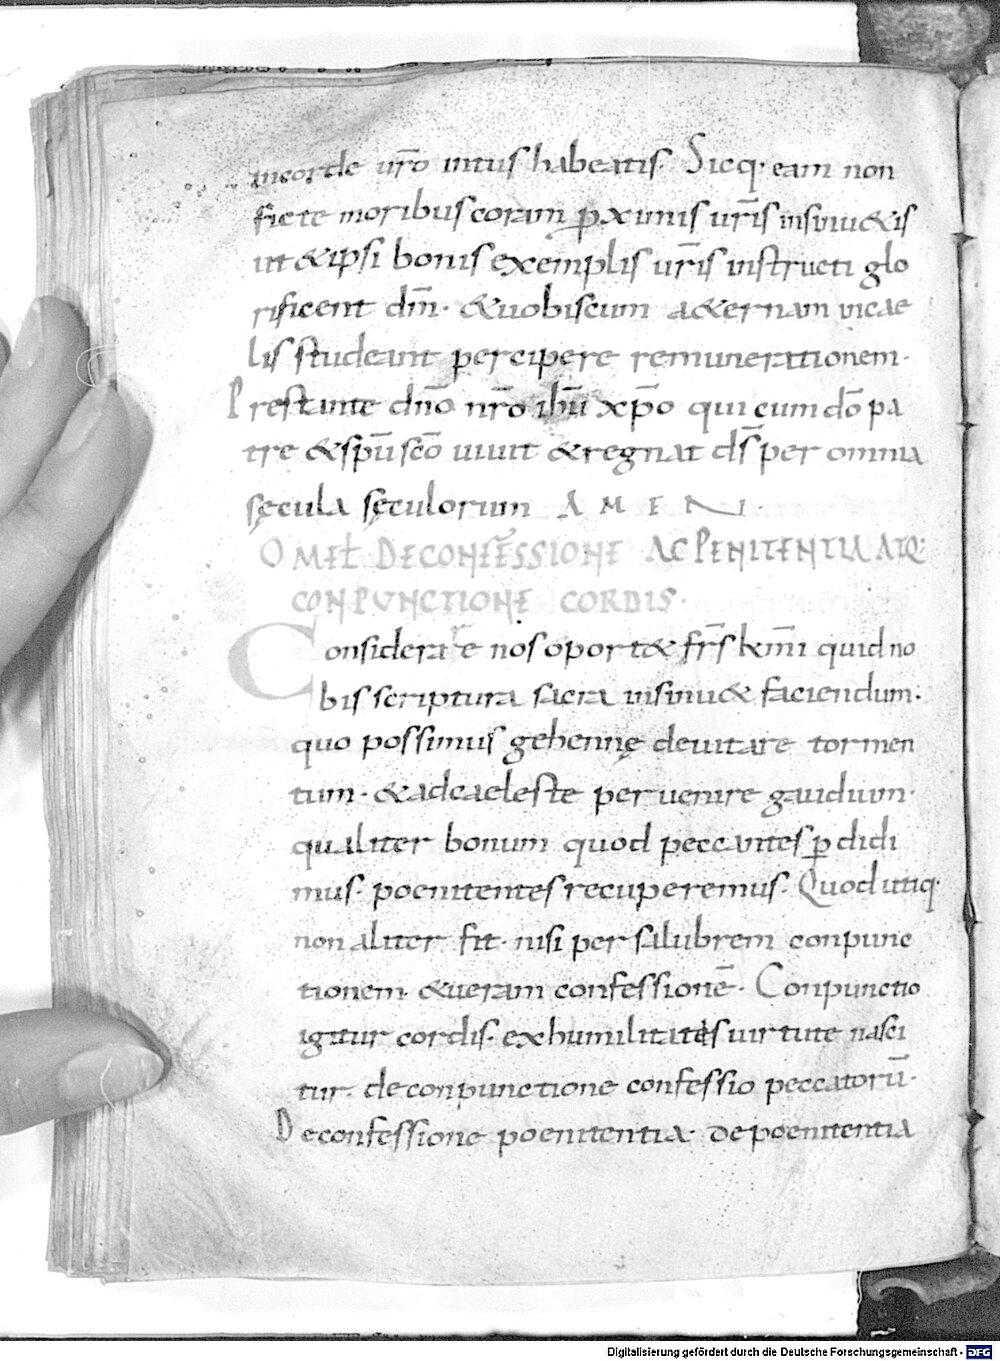 incorde ur̄o intus habeatis. Sicq· eam non
ficte moribus coram ꝑximis ur̄is insinu&is
ut &ipsi bonis exemplis ur̄is instructi glo
rificent dm̄. &uobiscum a&ernam vicae
lis studeant percipere remunerationem.
Prestante dn̄o nr̄o ih̄u xp̄o qui cum do̅ pa
tre &sp̄u sc̄o uiuit &regnat ds̄ per omnia
sęcula sęculorum AMEN.
OMEL̄ DECONFESSIONE AC PENITENTIA ATQ:
CONPUNCTIONE CORDIS.
Considerare nos oport& fr̄s km̄i quid no
bis scriptura sacra insinu& faciendum.
quo possimus gehennę deuitare tormen
tum. &adcaeleste peruenire gaudium.
qualiter bonum quod peccantes ꝑdidi
mus. poenitentes recuperemus. Quod utiq·
non aliter fit. nisi per salubrem conpunc
tionem. &ueram confessionē. Conpunctio
igitur cordis. ex humilitates uirtute nasci
tur. de conpunctione confessio peccatorū.
Deconfessione poenitentia. de poenitentia
Digitalisierung gefördert durch die Deutsche Forschungsgemeinschaft - DFG